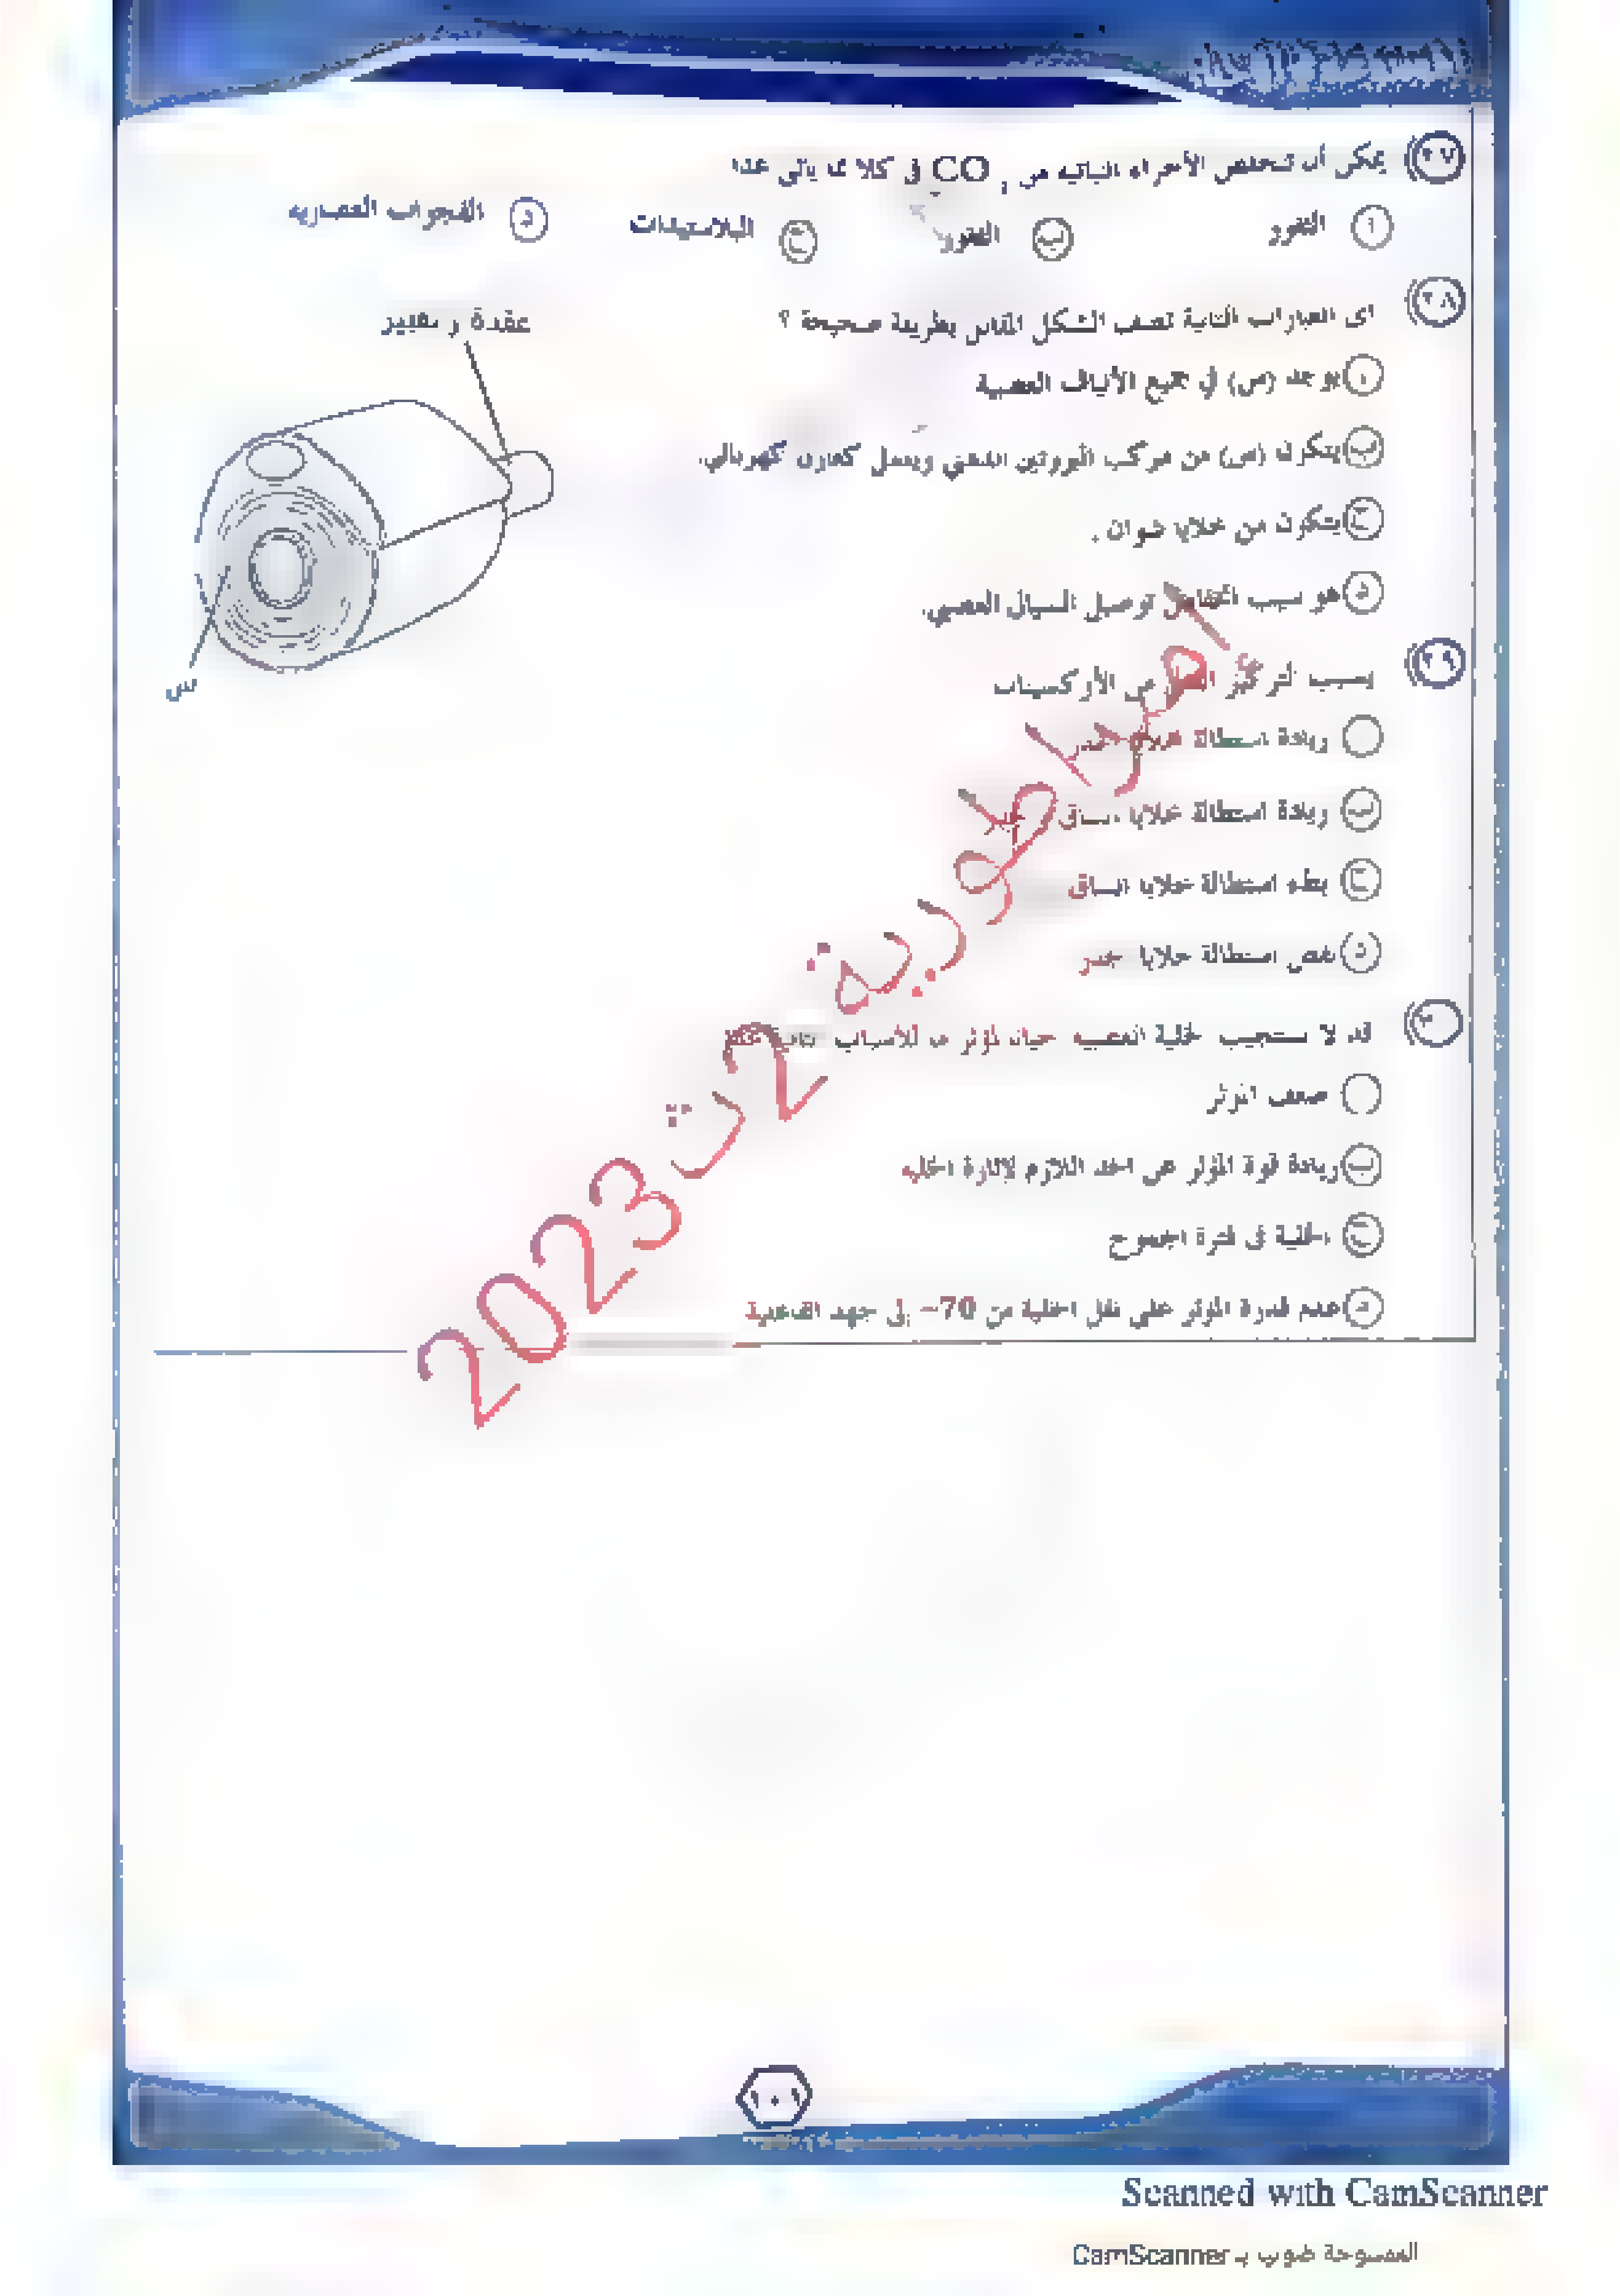 ٢٧ يمكن أن تتخلص الأجزاء النباتية من CO₂ فى كلا مما يأتى عدا
أ الثغور
ب
ج البلاستيدات
د الفجوات العصارية
٢٨ اى العبارات التالية تصف الشكل المقابل بطريقة صحيحة ؟
عقدة رانفيير
أ يوجد (س) في جميع الألياف العصبية
ب يتكون (س) من مركب البروتين الدهني ويعمل كعازل كهربائي.
ج يتكون من خلايا شوان .
د هو سبب انخفاض توصيل السيال العصبي.
س
٢٩ يسبب التركيز من الأوكسينات
زيادة استطالة خلايا الجذر
ب زيادة استطالة خلايا الساق
ج بطء استطالة خلايا الساق
د نقص استطالة خلايا الجذر
قد لا تستجيب الخلية العصبية حيال مؤثر ما للأسباب التالية عدا
ضعف المؤثر
ب زيادة قوة المؤثر عن الحد اللازم لإثارة الخلية
ج الخلية فى فترة الجموح
د عدم قدرة المؤثر على نقل الخلية من 70- إلى جهد الفاعلية
إمبراطورية 2ث 2023
١٠٩
Scanned with CamScanner
الممسوحة ضوئيا بـ CamScanner